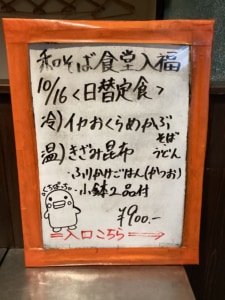 和そば食堂入福
10/16<日替定食>
冷)イカおくらめかぶ
そば
うどん
温)きざみ昆布
・ふりかけごはん(かつお)
・小鉢2品付
¥900.-
入口こちら